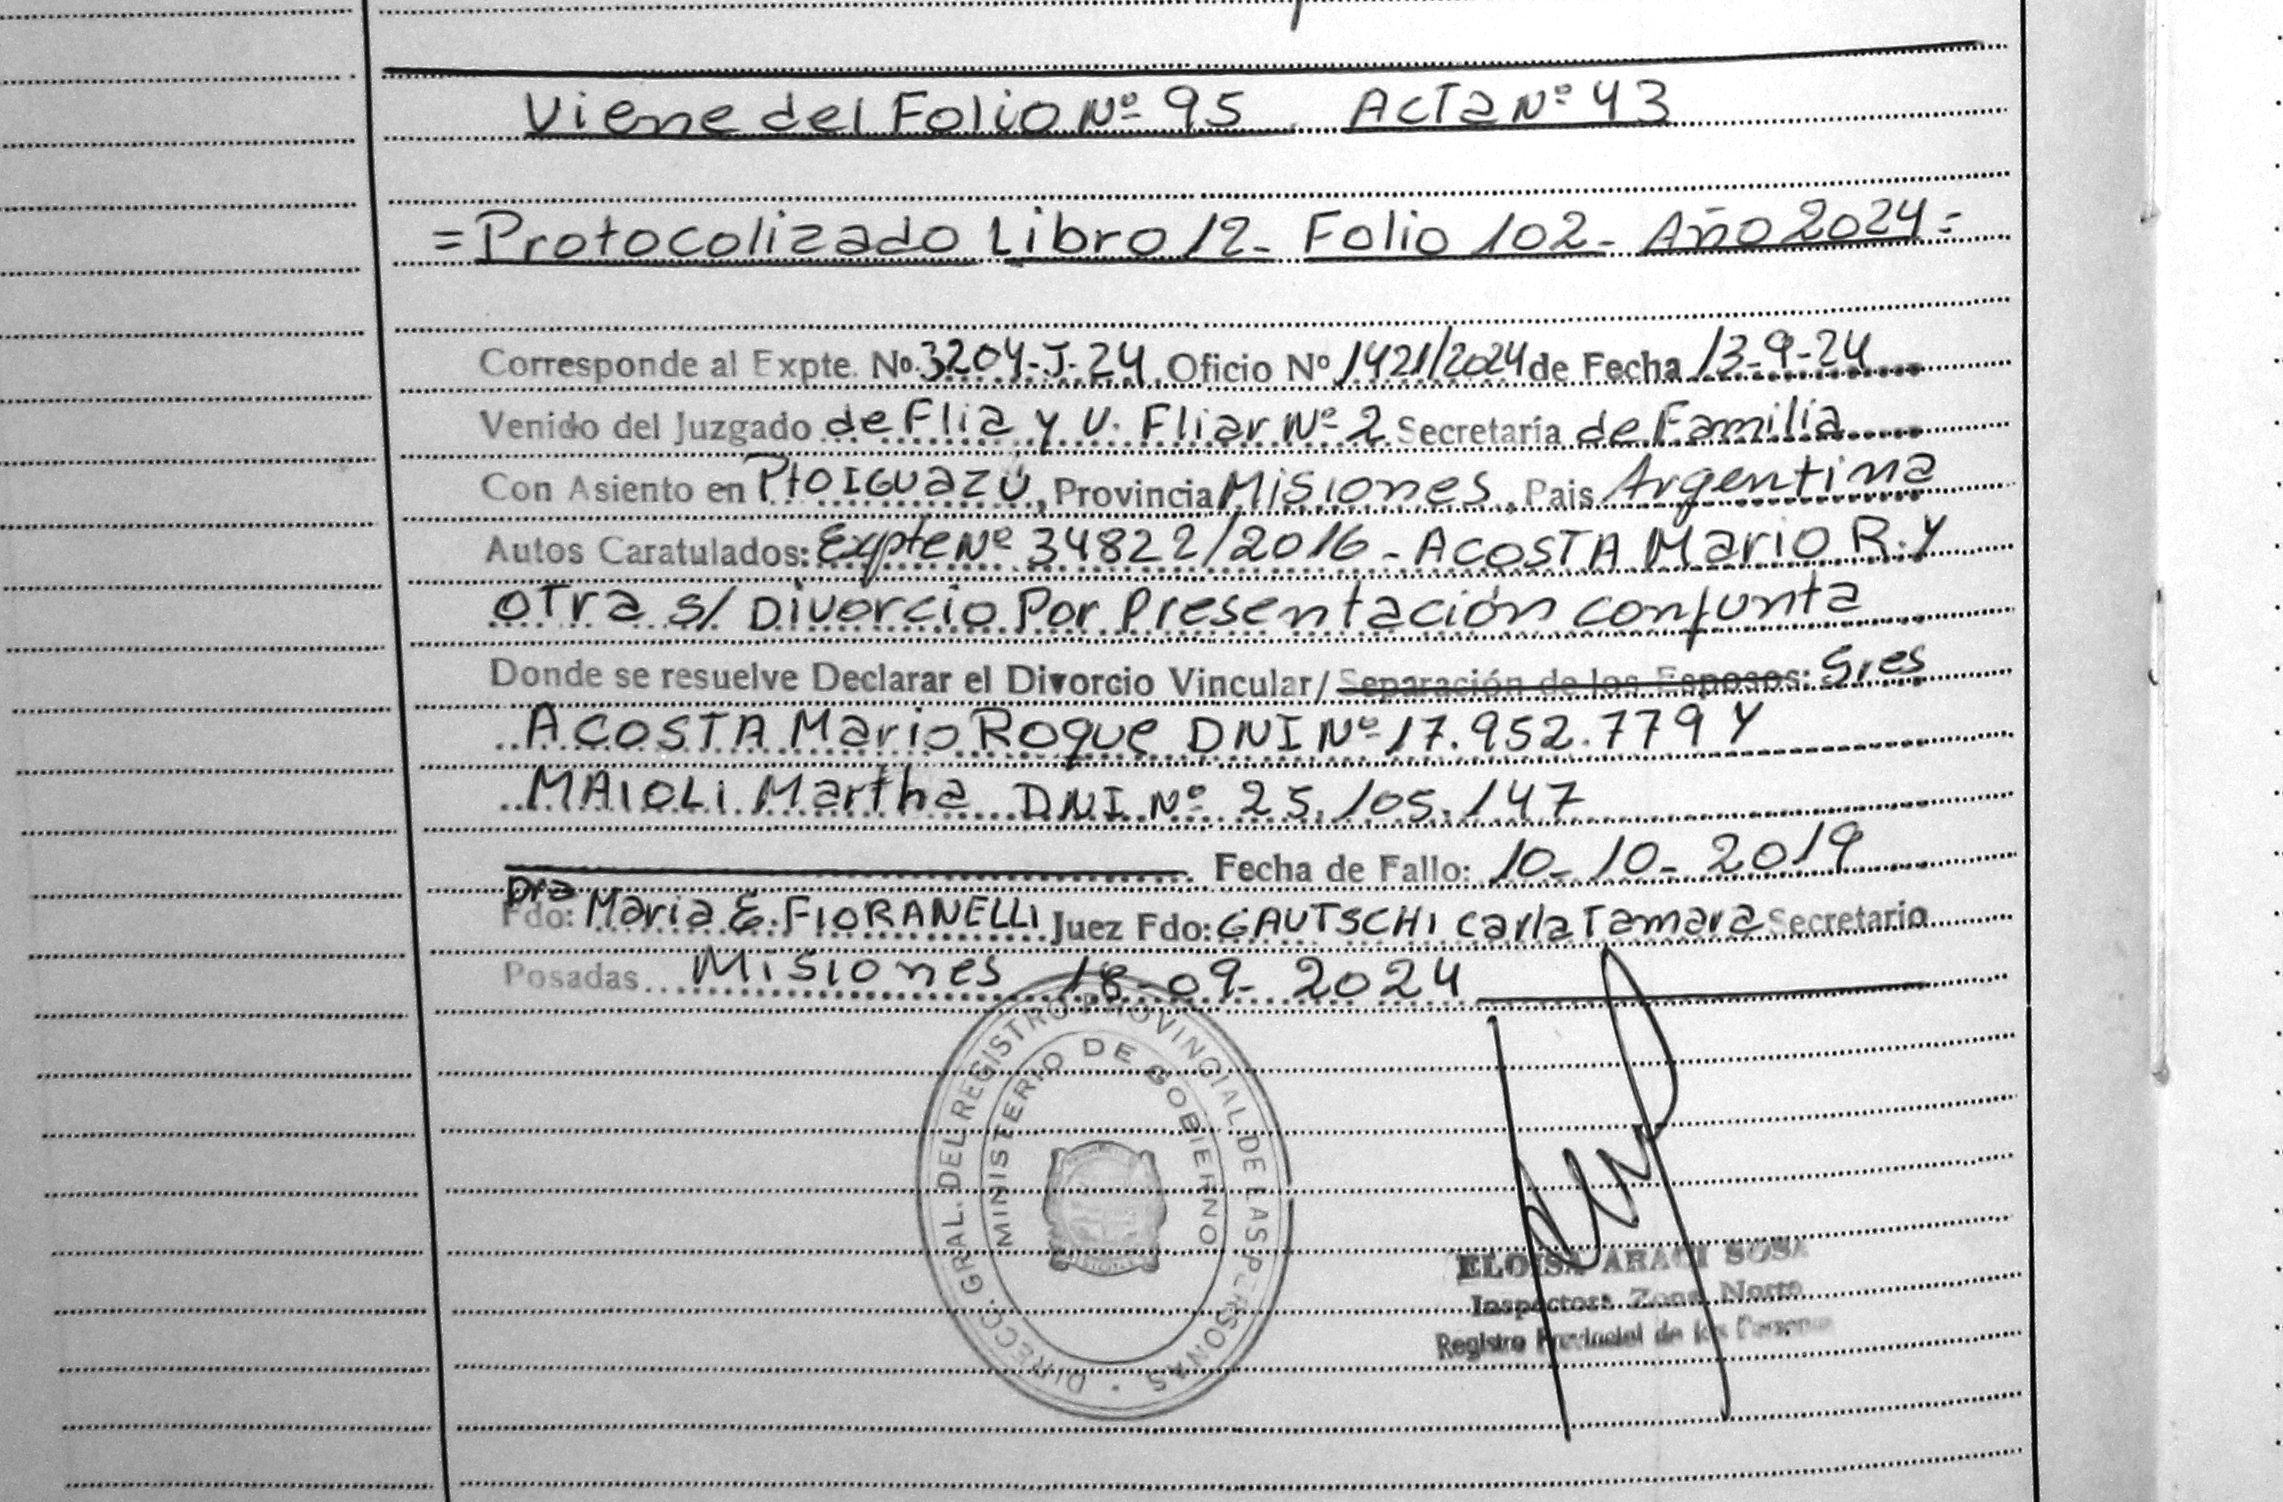 Viene del Folio Nº 95. Acta Nº 43
=Protocolizado Libro 12- Folio 102- Año 2024=
Corresponde al Expte. No. 3204-J-24, Oficio Nº 1421/2024 de Fecha 13-9-24
Venido del Juzgado de Flia y V. Fliar Nº 2 Secretaría de Familia
Con Asiento en Pto Iguazú, Provincia Misiones, Pais Argentina
Autos Caratulados: Expte Nº 34822/2016 - ACOSTA Mario R. Y
otra s/ Divorcio Por Presentación conjunta
Donde se resuelve Declarar el Divorcio Vincular/Separación de los Esposos: Sres
ACOSTA Mario Roque DNI Nº 17.952.779 Y
MAIOLI Martha DNI Nº 25.105.147
Fecha de Fallo: 10-10-2019
Dra
Fdo: Maria E. FIORANELLI Juez Fdo: GAUTSCHI Carla Tamara Secretario
Posadas Misiones 18-09-2024
DIRECC. GRAL. DEL REGISTRO PROVINCIAL DE LAS PERSONAS
MINISTERIO DE GOBIERNO
ELOISA ARACI SOSA
Inspectora Zona Norte
Registro Provincial de las Personas